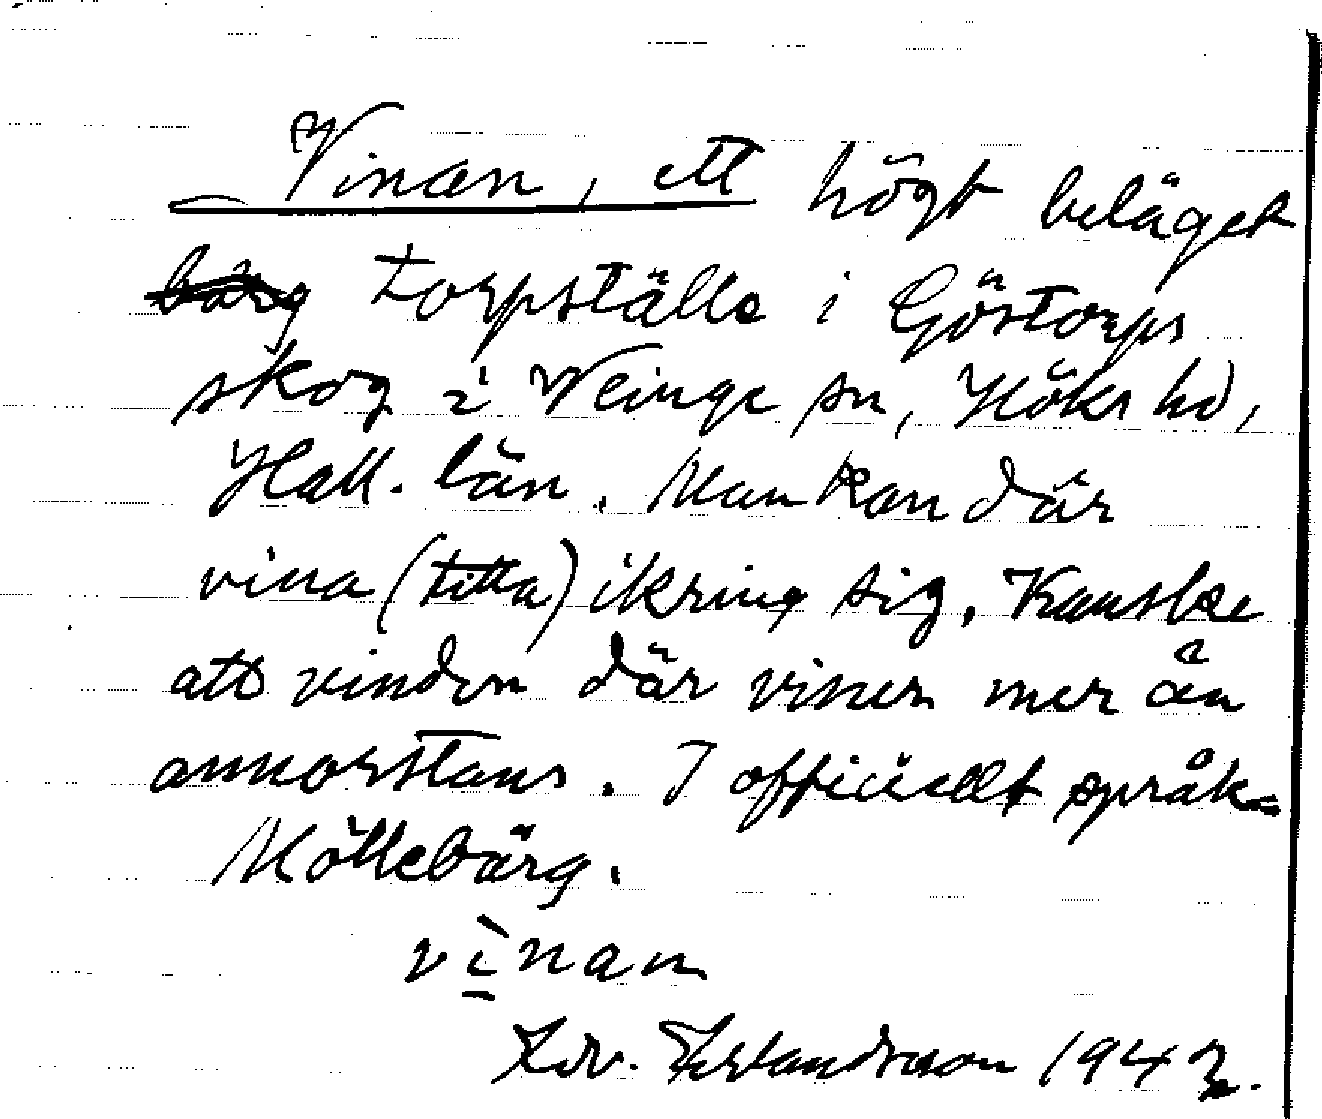 Vinan, ett högt beläget
bärg torpställe i Göstorps
skog i Veinge sn, Höks hd,
Hall. län. Man kan där
vina (titta) ikring sig. Kanske
att vinden där viner mer än
annorstans. I officiellt språk=
Möllebärg.
vìnan
1942.